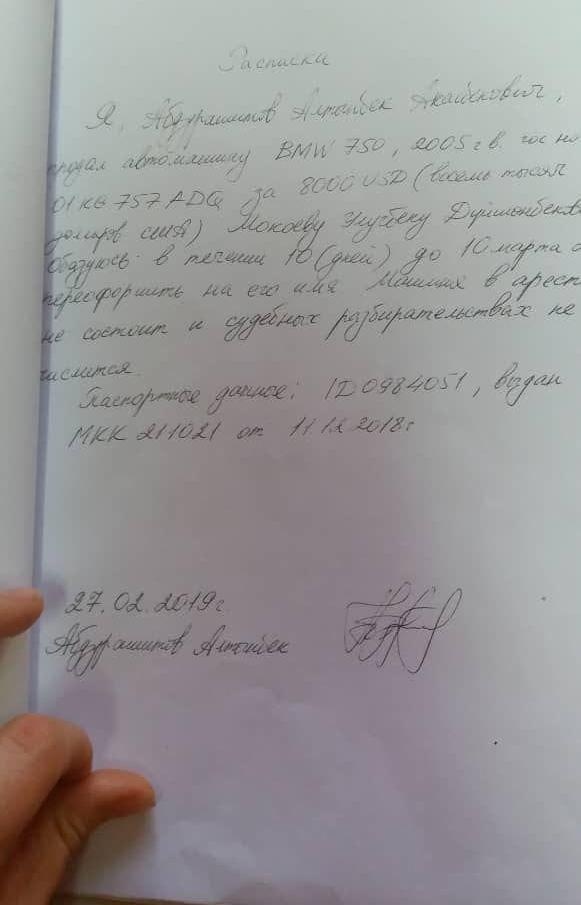 Расписка
Я, Абдурашитов Алтынбек Акайбекович,
продал автомашину BMW 750, 2005 г.в. гос но
01 KG 757 ADQ за 8000 USD (восемь тысяч
долларов сша) Мокоеву Улугбеку Дуйшонбеков
Обязуюсь в течении 10 (дней) до 10 марта
переоформить на его имя Машина в арест
не состоит и судебных разбирательствах не
числится.
Паспортные данные: ID 0984051, выдан
МКК 211021 от 11.12.2018г
27.02.2019г.
Абдурашитов Алтынбек